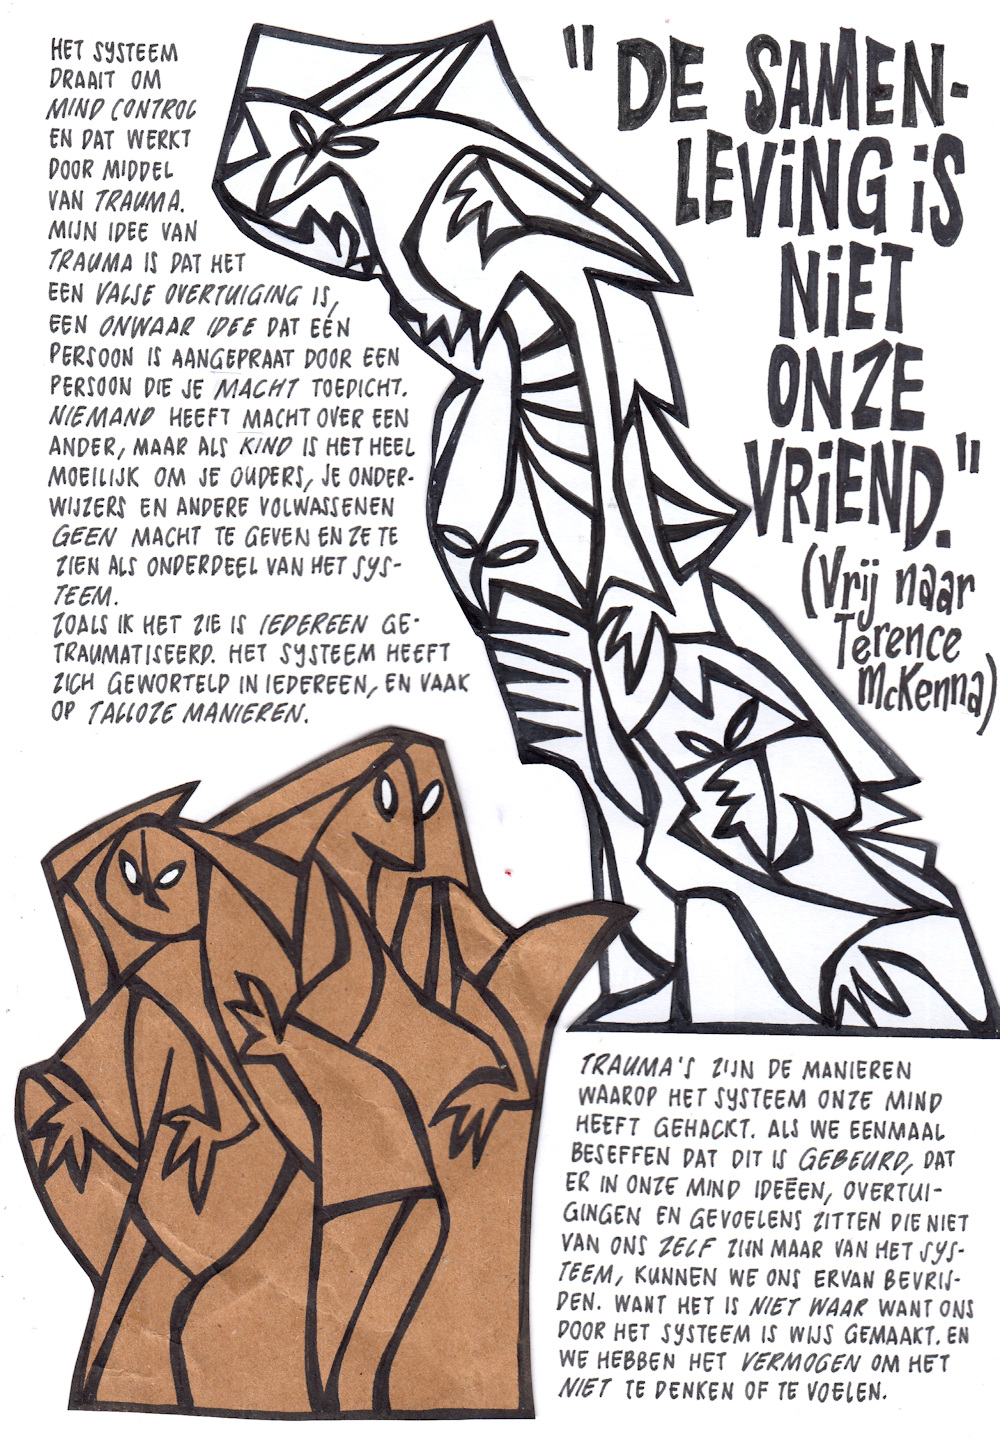 HET SYSTEEM
DRAAIT OM
MIND CONTROL
EN DAT WERKT
DOOR MIDDEL
VAN TRAUMA.
MIJN IDEE VAN
TRAUMA IS DAT HET
EEN VALSE OVERTUIGING IS,
EEN ONWAAR IDEE DAT EEN
PERSOON IS AANGEPRAAT DOOR EEN
PERSOON DIE JE MACHT TOEDICHT.
NIEMAND HEEFT MACHT OVER EEN
ANDER, MAAR ALS KIND IS HET HEEL
MOEILIJK OM JE OUDERS, JE ONDER-
WIJZERS EN ANDERE VOLWASSENEN
GEEN MACHT TE GEVEN EN ZE TE
ZIEN ALS ONDERDEEL VAN HET SYS-
TEEM.
ZOALS IK HET ZIE IS IEDEREEN GE-
TRAUMATISEERD. HET SYSTEEM HEEFT
ZICH GEWORTELD IN IEDEREEN, EN VAAK
OP TALLOZE MANIEREN.
"DE SAMEN-
LEViNG iS
NiET
ONZE
VRiEND."
(Vrij naar
Terence
McKenna)
TRAUMA'S ZIJN DE MANIEREN
WAAROP HET SYSTEEM ONZE MIND
HEEFT GEHACKT. ALS WE EENMAAL
BESEFFEN DAT DIT IS GEBEURD, DAT
ER IN ONZE MIND IDEEËN, OVERTUI-
GINGEN EN GEVOELENS ZITTEN DIE NIET
VAN ONS ZELF ZIJN MAAR VAN HET SYS-
TEEM, KUNNEN WE ONS ERVAN BEVRIJ-
DEN. WANT HET IS NIET WAAR WANT ONS
DOOR HET SYSTEEM IS WIJS GEMAAKT. EN
WE HEBBEN HET VERMOGEN OM HET
NIET TE DENKEN OF TE VOELEN.